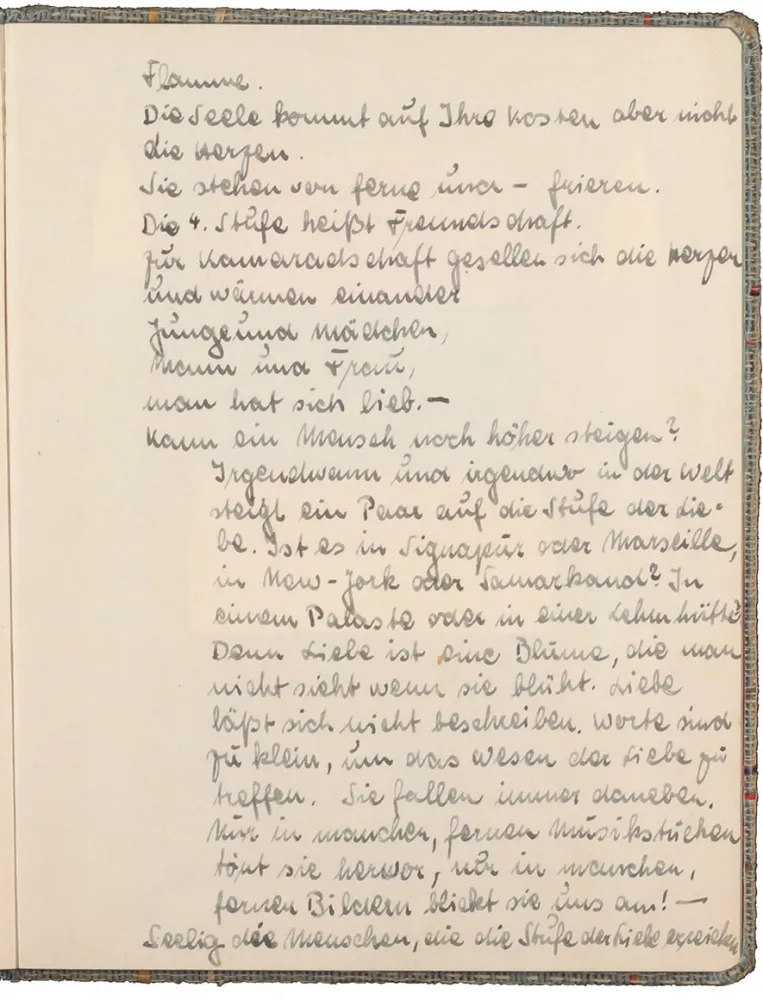 Flamme.
Die Seele kommt auf Ihre Kosten aber nicht
die Herzen.
Sie stehen von ferne und – frieren.
Die 4. Stufe heißt Freundschaft.
Zur Kameradschaft gesellen sich die Herzen
und wärmen einander
Junge und Mädchen,
Mann und Frau,
man hat sich lieb. –
Kann ein Mensch noch höher steigen?
Irgendwann und irgendwo in der Welt
steigt ein Paar auf die Stufe der Lie-
be. Ist es in Signapur oder Marseille,
in New-Jork oder Samarkand? In
einem Palaste oder in einer Lehmhütte?
Denn Liebe ist eine Blume, die man
nicht sieht wenn sie blüht. Liebe
läßt sich nicht beschreiben. Worte sind
zu klein, um das Wesen der Liebe zu
treffen. Sie fallen immer daneben.
Nur in manchen, fernen Musikstücken
tönt sie hervor, nur in manchen,
fernen Bildern blickt sie uns an! –
Seelig die Menschen, die die Stufe der Liebe erreichen